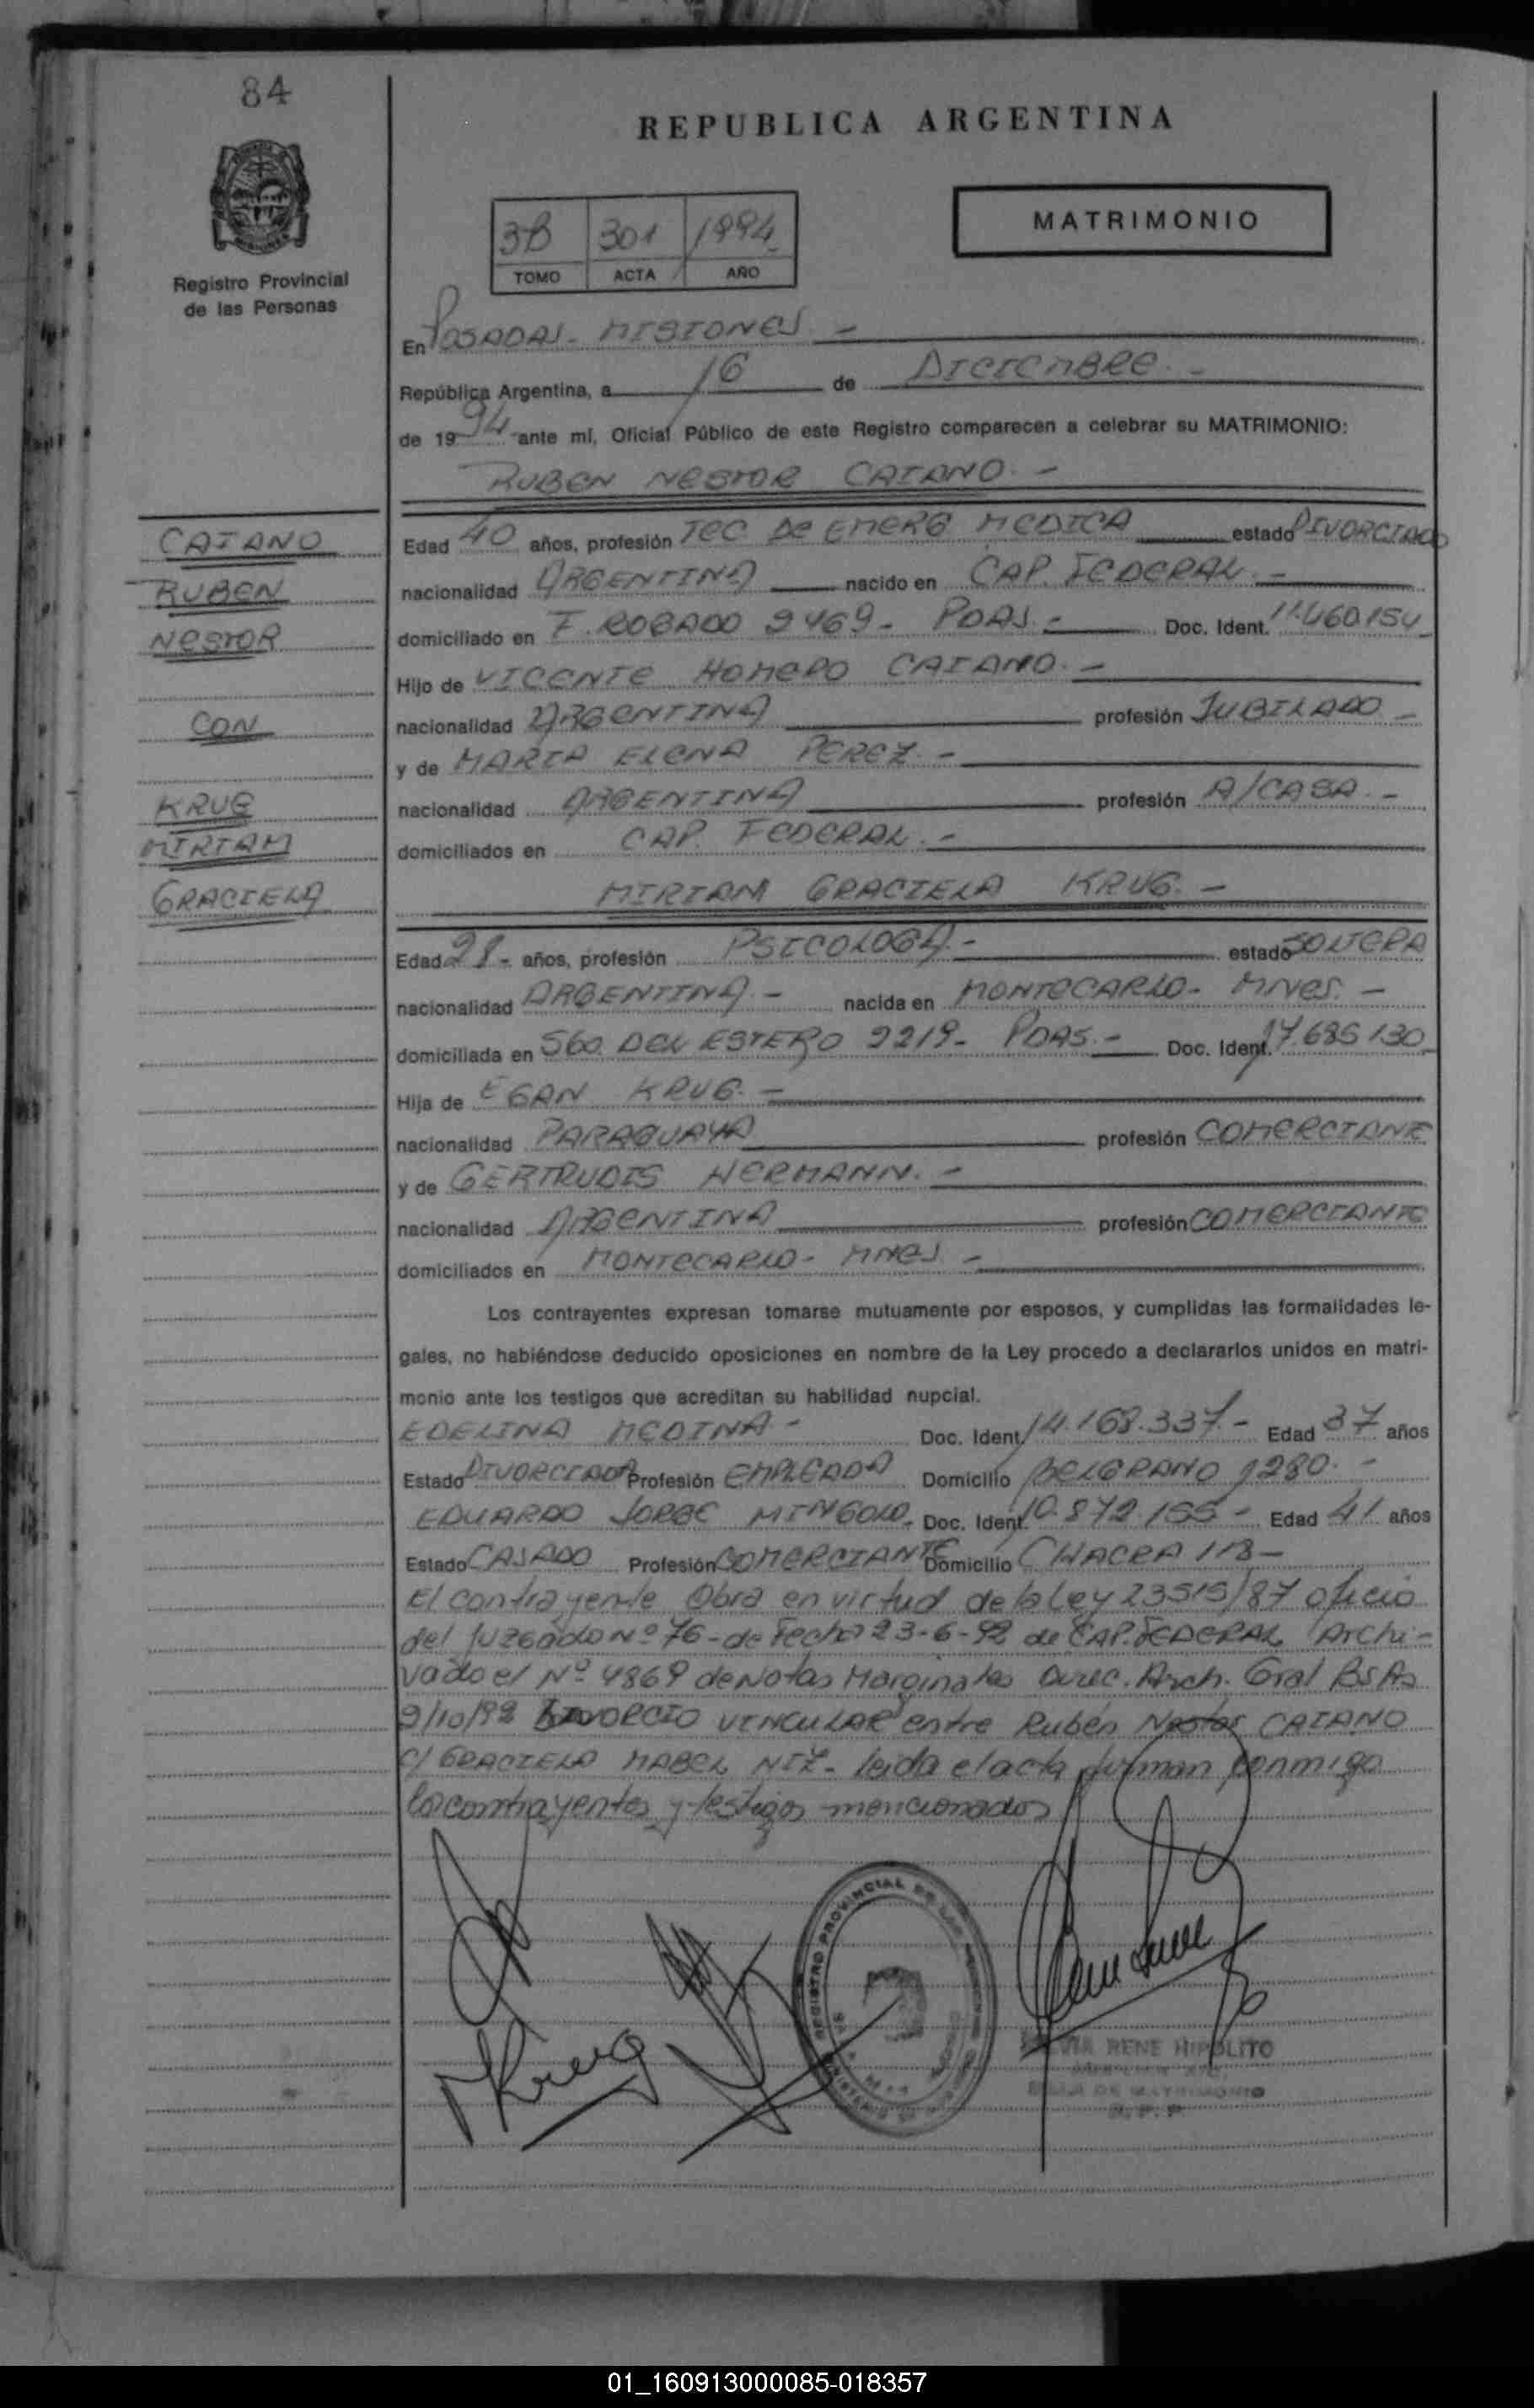 84
REPUBLICA ARGENTINA
MATRIMONIO
3B 301 1994
TOMO ACTA AÑO
Registro Provincial
de las Personas
En POSADAS - MISIONES -
República Argentina, a 16 de DICIEMBRE. -
de 1994 ante mí, Oficial Público de este Registro comparecen a celebrar su MATRIMONIO:
RUBEN NESTOR CAIANO. -
CAIANO
RUBEN
NESTOR
CON
KRUG
MIRIAM
GRACIELA
Edad 40 años, profesión TEC DE EMERG MEDICA estado DIVORCIADO
nacionalidad ARGENTINA nacido en CAP. FEDERAL. -
domiciliado en F. ROBADO 2469 - PDAS. - Doc. Ident. 11.460.154
Hijo de VICENTE HOMERO CAIANO. -
nacionalidad ARGENTINA profesión JUBILADO -
y de MARIA ELENA PEREZ. -
nacionalidad ARGENTINA profesión A/CASA. -
domiciliados en CAP. FEDERAL. -
MIRIAM GRACIELA KRUG. -
Edad 28 - años, profesión PSICOLOGA. - estado SOLTERA
nacionalidad ARGENTINA. - nacida en MONTECARLO - MNES. -
domiciliada en SGO. DEL ESTERO 2219 - PDAS. - Doc. Ident. 17.685.130
Hija de EGAN KRUG. -
nacionalidad PARAGUAYA profesión COMERCIANTE
y de GERTRUDIS HERMANN. -
nacionalidad ARGENTINA profesión COMERCIANTE
domiciliados en MONTECARLO - MNES -
Los contrayentes expresan tomarse mutuamente por esposos, y cumplidas las formalidades le-
gales, no habiéndose deducido oposiciones en nombre de la Ley procedo a declararlos unidos en matri-
monio ante los testigos que acreditan su habilidad nupcial.
EDELINA MEDINA - Doc. Ident. 14.168.337 - Edad 37 años
Estado DIVORCIADA Profesión EMPLEADA Domicilio BELGRANO 1280. -
EDUARDO JORGE MINGOLO. Doc. Ident. 10.872.155 - Edad 41 años
Estado CASADO Profesión COMERCIANTE Domicilio CHACRA 118 -
El contrayente Obra en virtud de la Ley 23515/87 oficio
del Juzgado Nº 76 - de Fecha 23-6-92 de CAP. FEDERAL Archi-
vado el Nº 4869 de Notas Marginales Direc. Arch. Gral Bs As
9/10/92 DIVORCIO VINCULAR entre Rubén Nestor CAIANO
C/ GRACIELA MABEL NIZ - leida el acta firman conmigo
los contrayentes y testigos mencionados
MKrug
REGISTRO PROVINCIAL DE LAS
RENE HIPOLITO
SALA DE MATRIMONIO
R. P. P.
01_160913000085-018357